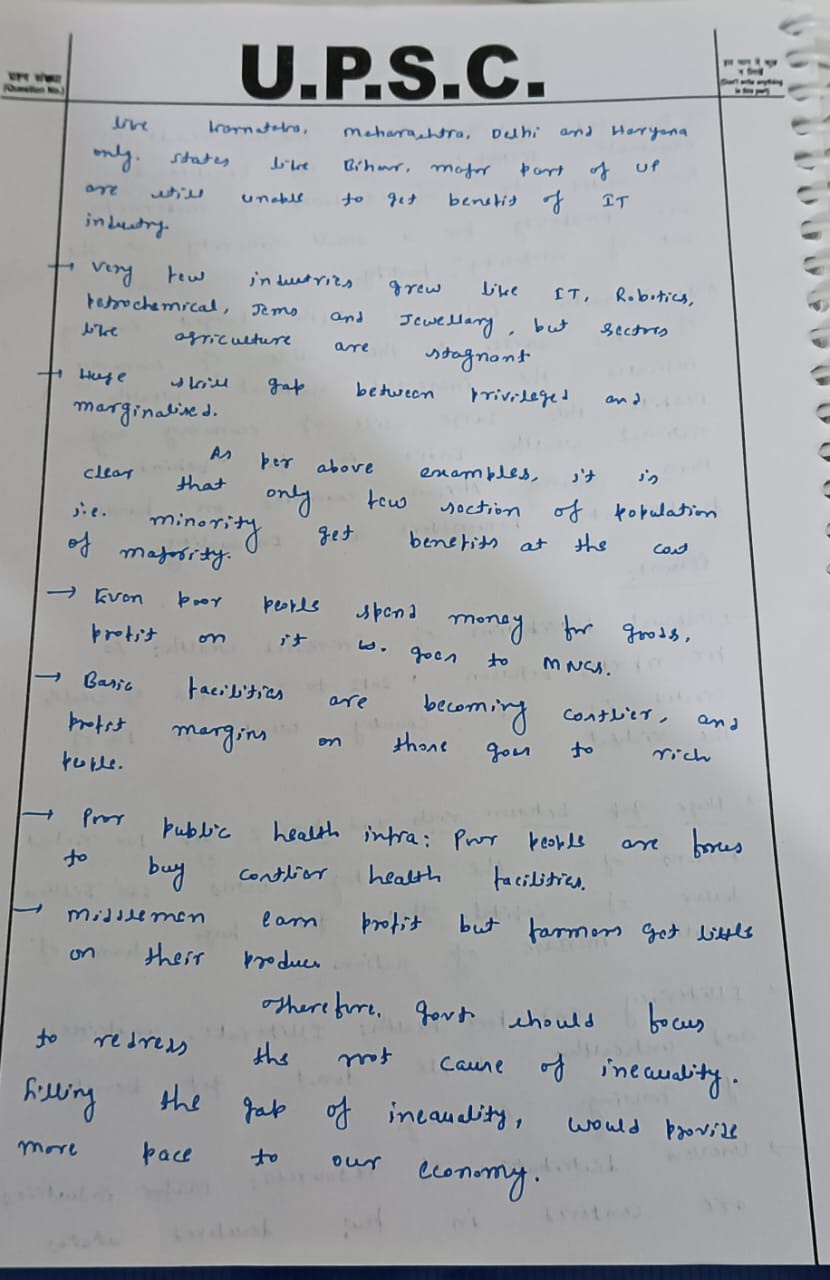 U.P.S.C.
प्रश्न संख्या
(Question No.)
इस भाग में कुछ
न लिखें
(Don't write anything
in this part)
like Karnataka, Maharashtra, Delhi and Haryana
only. States like Bihar, major part of UP
are still unable to get benefit of IT
industry.
→ Very few industries grew like IT, Robotics,
Petrochemical, Jems and Jewellary, but sectors
like agriculture are stagnant
→ Huge skill gap between privileged and
marginalised.
As per above examples, it is
clear that only few section of population
i.e. minority get benefits at the cost
of majority.
→ Even poor people spend money for goods,
profit on it goes to MNCs.
→ Basic facilities are becoming costlier, and
profit margins on those goes to rich
people.
→ Poor public health infra: Poor people are forces
to buy costlier health facilities.
→ Middlemen earn profit but farmers get little
on their produce
Therefore, govt should focus
to redress the root cause of inequality.
Filling the gap of inequality, would provide
more pace to our economy.